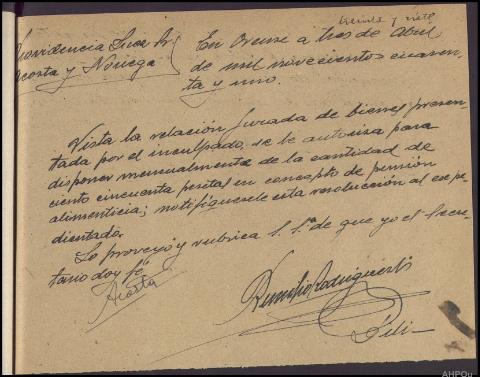 treinta y siete
Providencia Juez Sr.
Acosta y Noriega
En Orense a tres de Abril
de mil novecientos cuaren-
ta y uno.
Vista la relación jurada de bienes presen-
tada por el inculpado, se le autoriza para
disponer mensualmente de la cantidad de
ciento cincuenta pesetas en concepto de pensión
alimenticia; notifíquesele esta resolución al expe-
dientado.
Lo proveyó y rubrica S. Sª de que yo el Secre-
tario doy fé
Acosta
Rodríguez
AHPOu